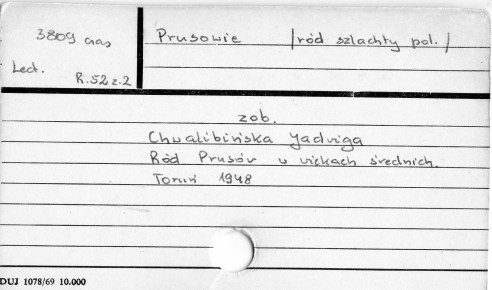 3809 czas
Lect.
R.52 z.2
Prusowie /ród szlachty pol./
zob.
Chwalibińska Jadwiga
Ród Prusów w wiekach średnich.
Toruń 1948
DUJ 1078/69 10.000